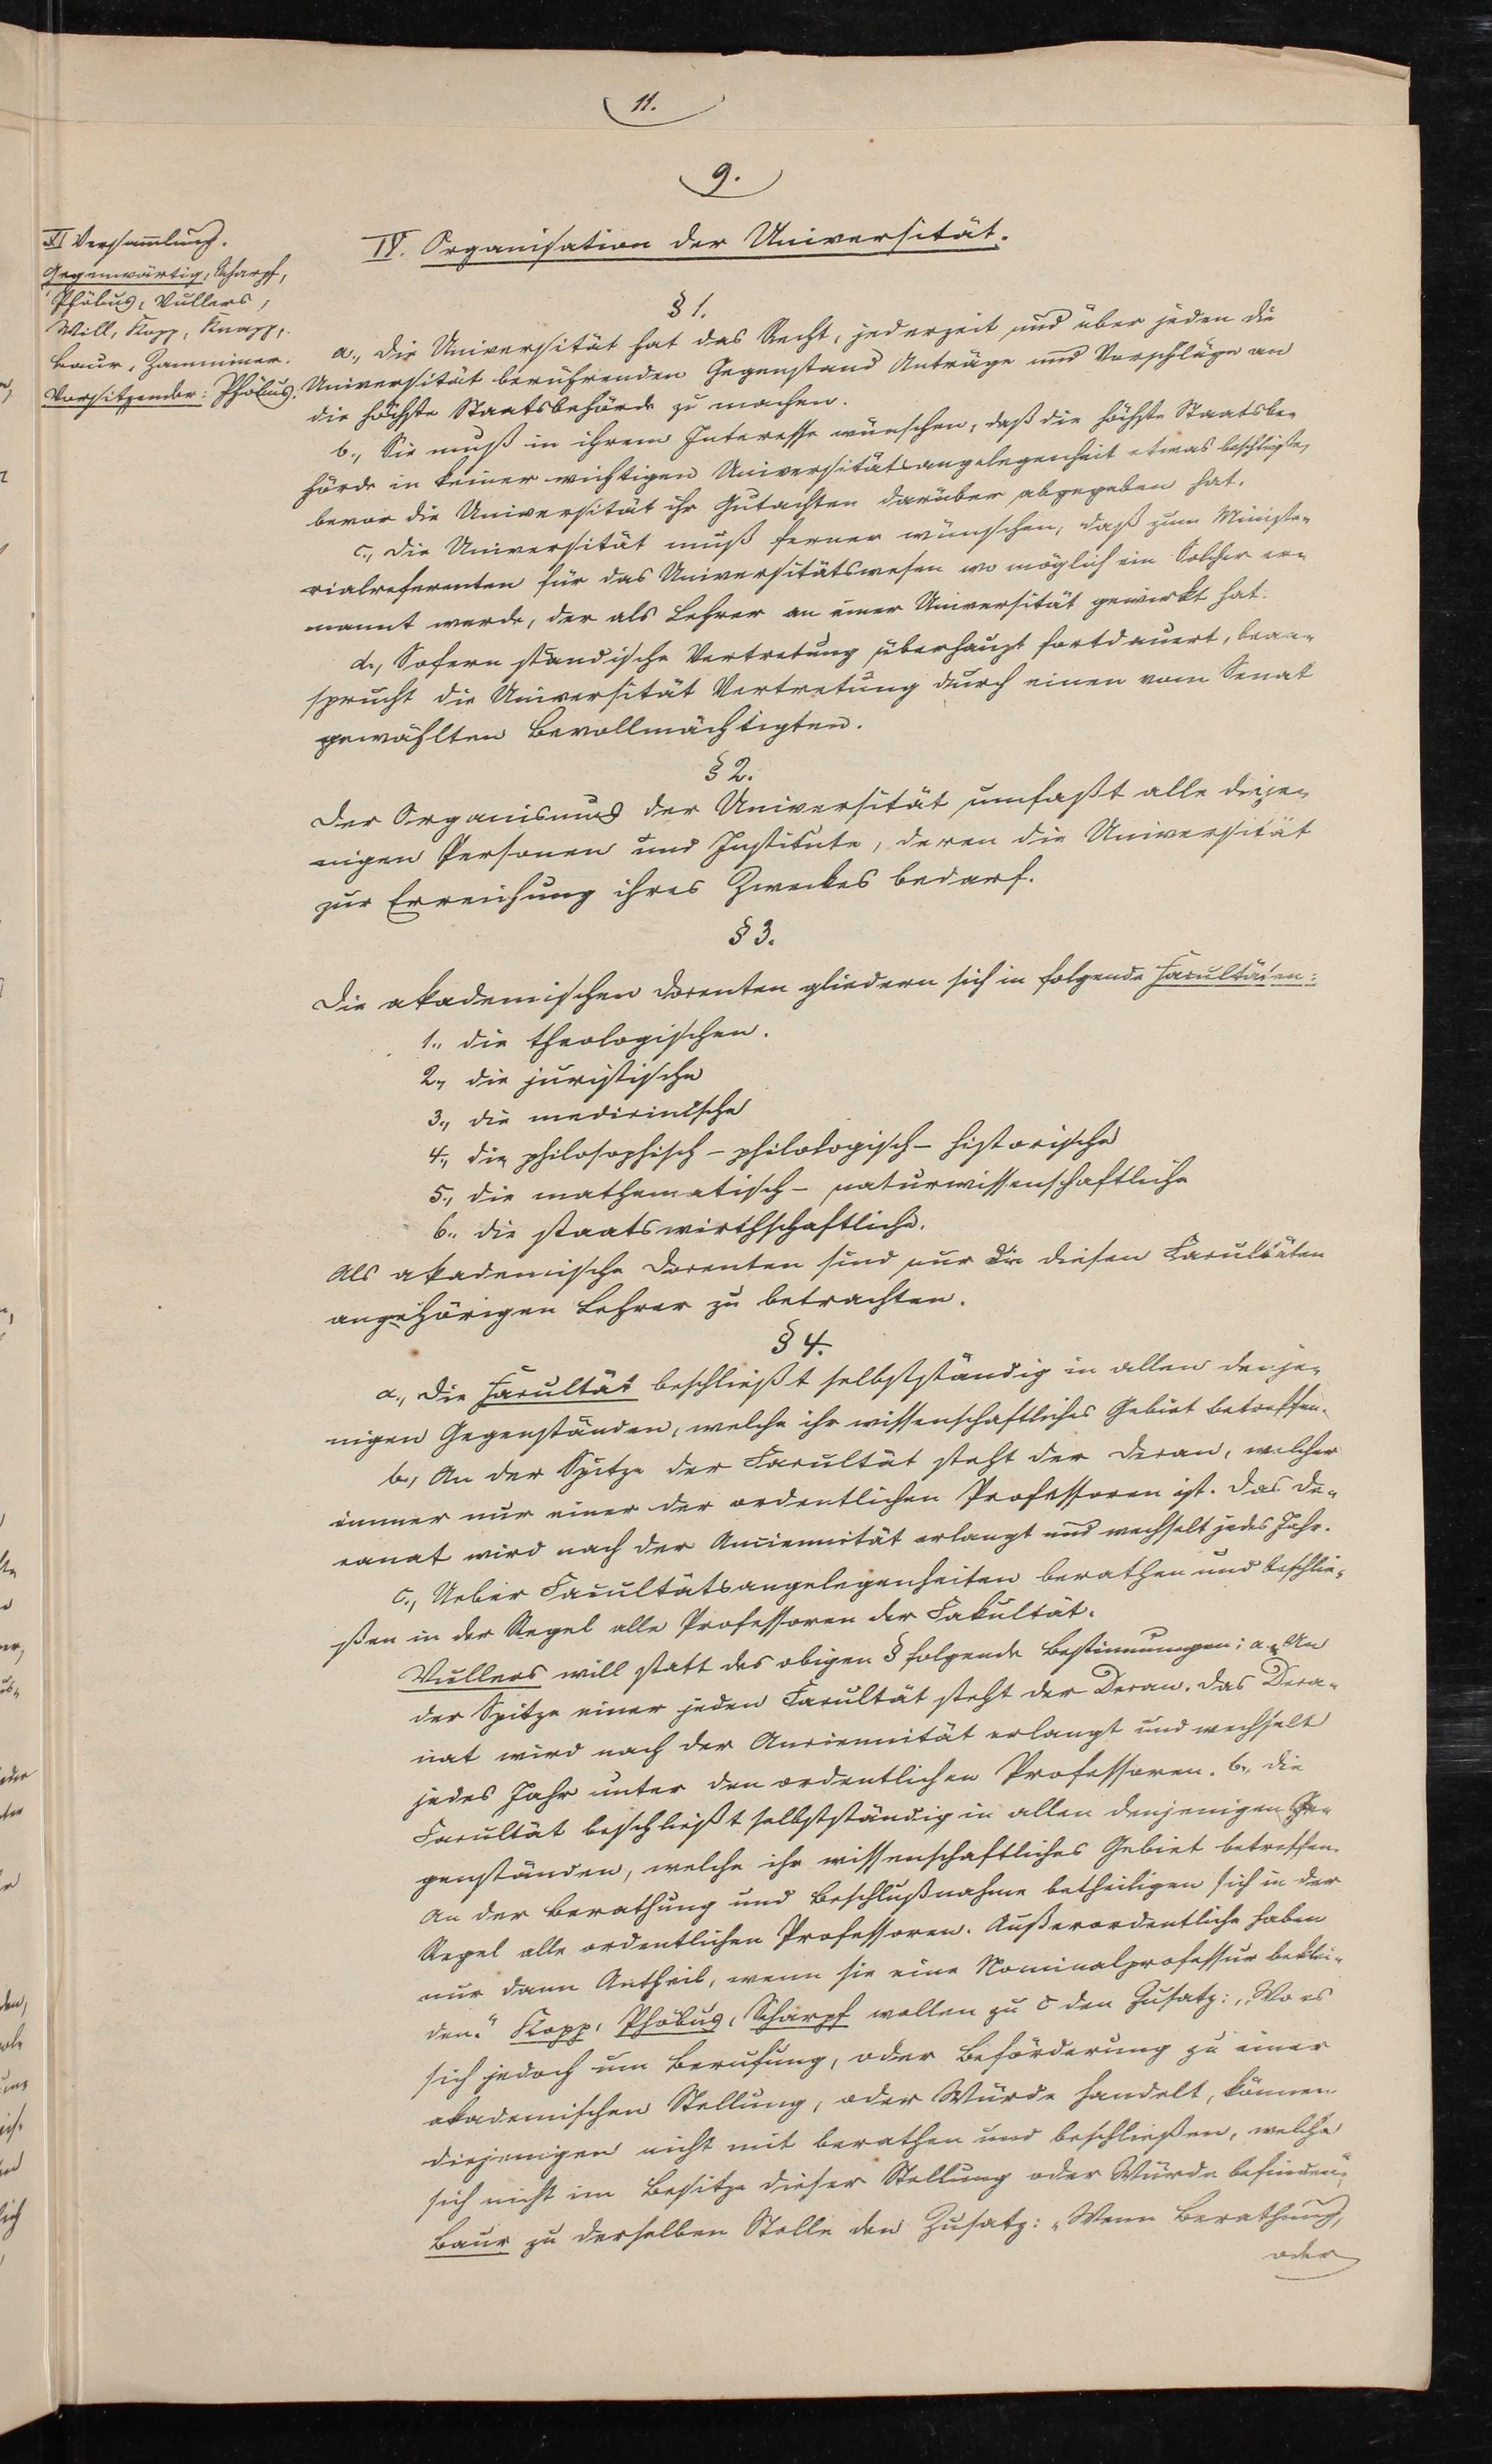 11.
9.
XI Versammlung.
Gegenwärtig: Scharpf,
Phöbus, Vullers,
Will, Kopp, Knapp,
Baur, Zamminer.
Vorsitzender: Phöbus.
IV. Organisation der Universität.
§ 1.
a., Die Universität hat das Recht, jederzeit und über jeden die
Universität berührenden Gegenstand Anträge und Vorschläge an
die höchste Staatsbehörde zu machen.
b., Sie muß in ihrem Interesse wünschen, daß die höchste Staatsbe-
hörde in keiner wichtigen Universitätsangelegenheit etwas beschließe,
bevor die Universität ihr Gutachten darüber abgegeben hat.
c., Die Universität muß ferner wünschen, daß zum Ministe-
rialreferenten für das Universitätswesen wo möglich ein Solcher er-
nannt werde, der als Lehrer an einer Universität gewirkt hat.
d., Sofern ständische Vertretung überhaupt fortdauert, bean-
sprucht die Universität Vertretung durch einen vom Senat
gewählten Bevollmächtigten.
§ 2.
Der Organismus der Universität umfaßt alle dieje-
nigen Personen und Institute, deren die Universität
zur Erreichung ihres Zweckes bedarf.
§ 3.
Die akademischen Docenten gliedern sich in folgende Facultäten:
1., die theologischen.
2., die juristische
3., die medicinische
4., die philosophisch - philologisch - historische
5., die mathematisch - naturwissenschaftliche
6., die staatswirthschaftliche.
Als akademische Docenten sind nur die diesen Facultäten
angehörigen Lehrer zu betrachten.
§ 4.
a., Die Facultät beschließt selbstständig in allen denje-
nigen Gegenständen, welche ihr wissenschaftliches Gebiet betreffen.
b., An der Spitze der Facultät steht der Decan, welcher
immer nur einer der ordentlichen Professoren ist. Das De-
canat wird nach der Anciennität erlangt und wechselt jedes Jahr.
c., Ueber Facultätsangelegenheiten berathen und beschlie-
ßen in der Regel alle Professoren der Fakultät.
Vullers will statt des obigen § folgende Bestimmungen: a., An
der Spitze einer jeden Facultät steht der Decan. Das Deca-
nat wird nach der Anciennität erlangt und wechselt
jedes Jahr unter den ordentlichen Professoren. b., die
Facultät beschließt selbstständig in allen denjenigen Ge-
genständen, welche ihr wissenschaftliches Gebiet betreffen.
An der Berathung und Beschlußnahme betheiligen sich in der
Regel alle ordentlichen Professoren. Außerordentliche haben
nur dann Antheil, wenn sie eine Nominalprofessur beklei-
den." Kopp, Phöbus, Scharpf wollen zu c den Zusatz: „Wo es
sich jedoch um Berufung, oder Beförderung zu einer
akademischen Stellung, oder Würde handelt, können
diejenigen nicht mit berathen und beschließen, welche
sich nicht im Besitze dieser Stellung oder Würde befinden";
Baur zu derselben Stelle den Zusatz: „Wenn Berathung,
oder